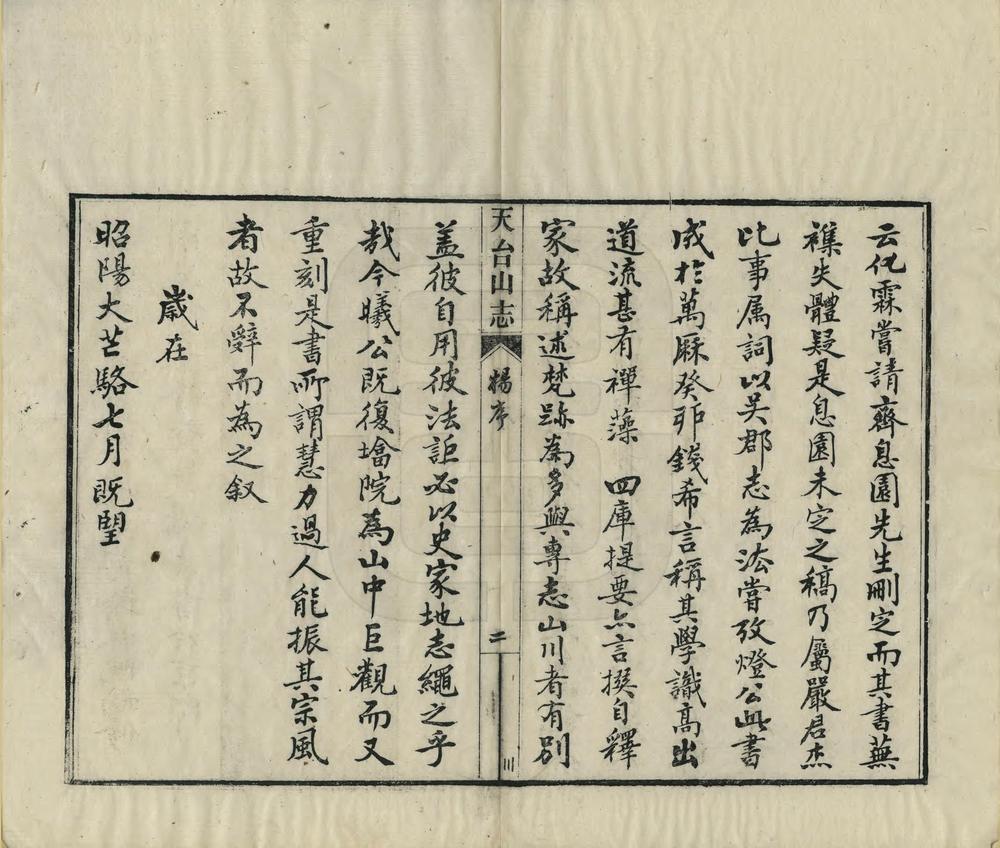 云化霖嘗請齊息園先生刪定而其書蕪
襍失體疑是息園未定之稿乃屬嚴君杰
比事属詞以吳郡志為法嘗攷燈公此書
成於萬厤癸丣錢希言稱其學識高出
道流甚有禪藻　四庫提要亦言撰自釋
家故稱述梵跡為多與專志山川者有別
天台山志
楊序
二
蓋彼自用彼法詎必以史家地志繩之乎
哉今曦公既復塔院為山中巨觀而又
重刻是書所謂慧力過人能振其宗風
者故不辭而為之叙
歲在
昭陽大芒駱七月既朢